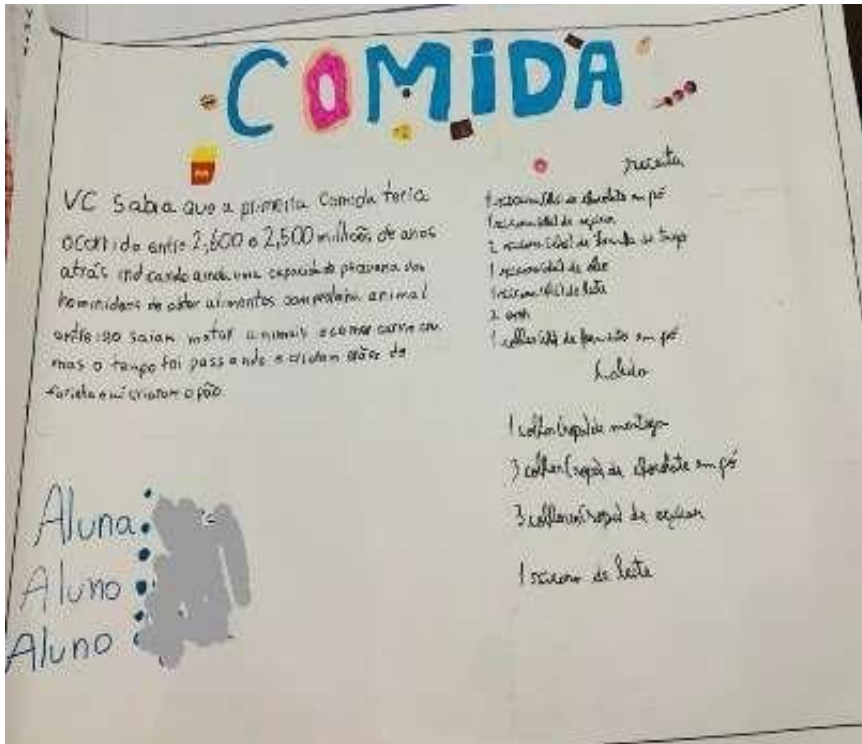 COMIDA
VC Sabia que a primeira Comida teria
ocorrido entre 2,600 e 2,500 milhões de anos
atrás indicando ainda uma capacidade pequena dos
hominideos de obter alimentos com proteina animal
entre isso saiam matar animais e comer carne
mas o tempo foi passando e criaram de
farinha e criaram o pão
Aluna:
Aluno:
Aluno:
receita
1 xicara (chá) de chocolate em pó
1 xicara (chá) de açúcar
2 xicaras (chá) de farinha de trigo
1 xicara (chá) de óleo
1 xicara (chá) de leite
2 ovos
1 colher (chá) de fermento em pó
1 colher (sopa) de manteiga
3 colher (sopa) de chocolate em pó
3 colheres (sopa) de açúcar
1 xicara de leite